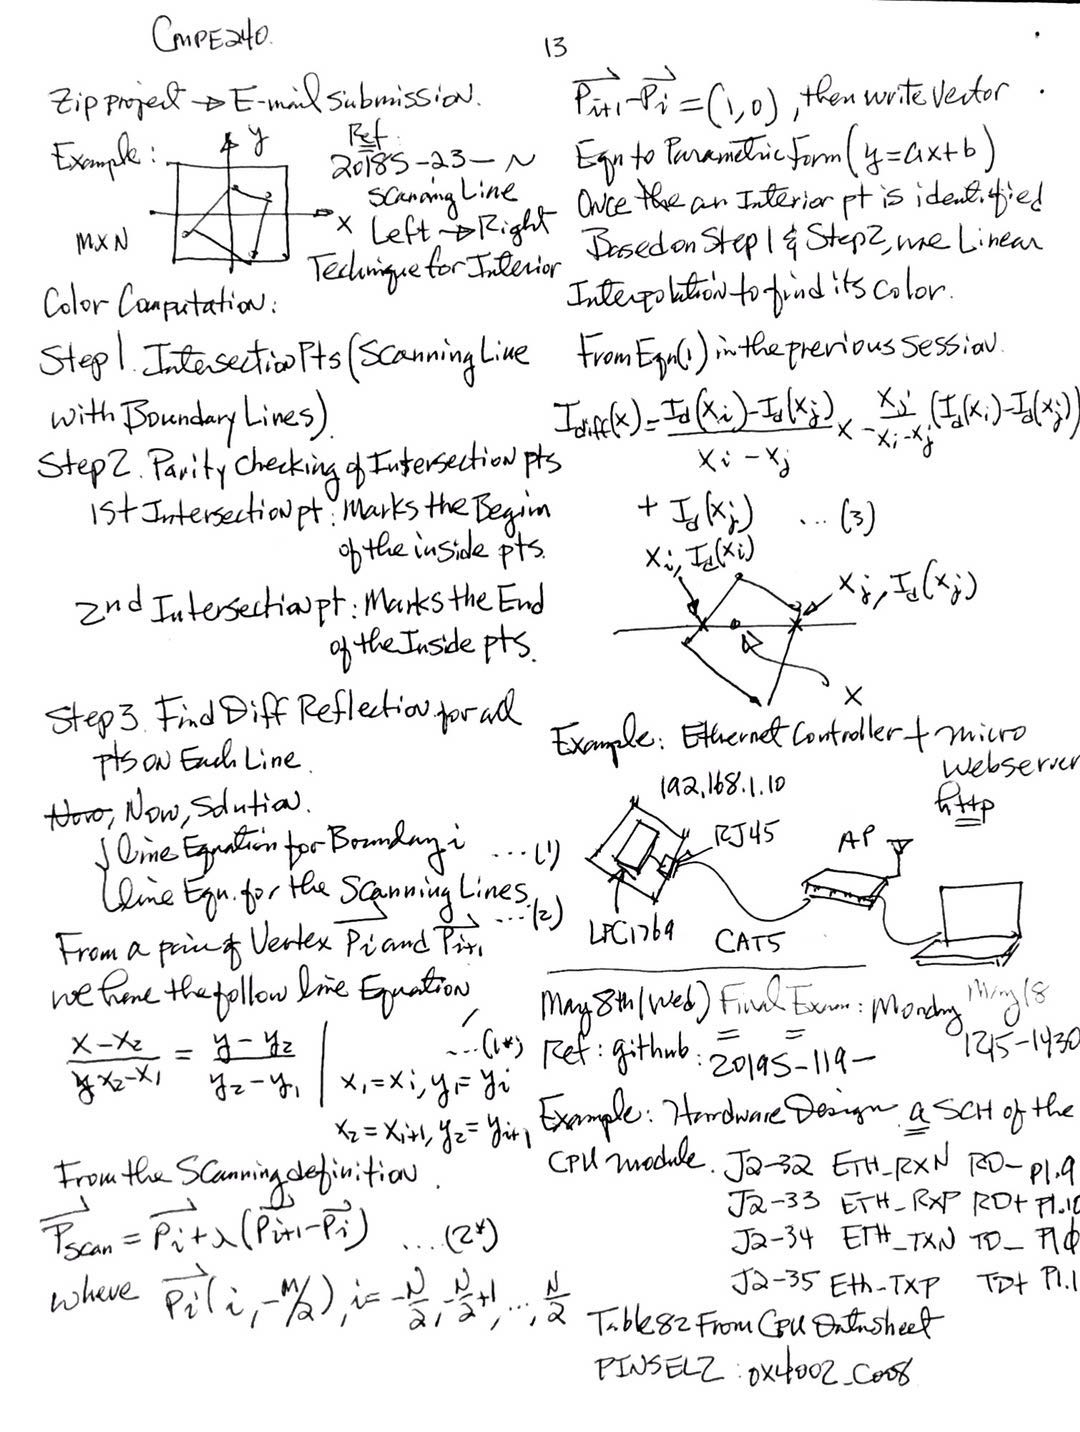 CMPE240.
13
Zip project → E-mail submission.
Example:
y
x
MXN
Ref.
2018S-23-~
Scanning Line
Left → Right
Technique for Interior
Color Computation:
Step 1. Intersection Pts (Scanning Line
with Boundary Lines)
Step 2. Parity Checking of Intersection pts
1st Intersection pt: Marks the Begin
of the inside pts.
2nd Intersection pt: Marks the End
of the Inside pts.
Step 3. Find Diff Reflection for all
Pts on Each Line.
Now, Now, Solution.
{ line Equation for Boundary i ...(1)
line Eqn. for the Scanning Lines ...(2)
From a pair of Vertex Pi and Pi+1
we have the follow line Equation
x-x2 / x2-x1 = y-y2 / y2-y1 | ...(1*)
x1=xi, y1=yi
x2=xi+1, y2=yi+1
From the Scanning definition.
Pscan = Pi+λ(Pi+1-Pi) ...(2*)
where Pi(i,-M/2), i=-N/2, -N/2+1, ..., N/2
Pi+1-Pi=(1,0), then write Vector
Eqn to Parametric Form (y=ax+b)
Once the an Interior pt is identified
Based on Step 1 & Step 2, use Linear
Interpolation to find its Color.
From Eqn(1) in the previous Session.
Idiff(x)= Id(xi)-Id(xj) / xi-xj x - xj / xi-xj (Id(xi)-Id(xj))
+ Id(xj) ...(3)
xi, Id(xi)
xj, Id(xj)
x
Example: Ethernet Controller + micro
Webserver
http
192.168.1.10
RJ45
AP
LPC1769
CAT5
May 8th (Wed) Final Exam: Monday May 18
1215-1430
Ref: github: 2019S-119-
Example: Hardware Design. a SCH of the
CPU module. J2-32 ETH_RXN RD- P1.9
J2-33 ETH_RXP RD+ P1.10
J2-34 ETH_TXN TD- P1.0
J2-35 Eth-TXP TD+ P1.1
Table 82 From CPU Datasheet
PINSEL2: 0x4002_C008